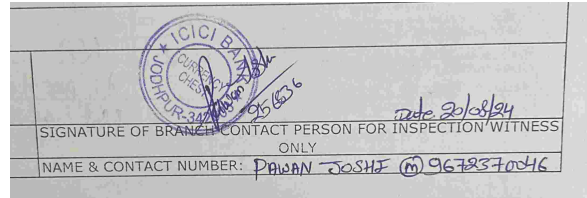 ★ ICICI BANK
CURRENCY
CHEST
JODHPUR-342
Pawan Joshi
Date 20/08/24
SIGNATURE OF BRANCH CONTACT PERSON FOR INSPECTION WITNESS
ONLY
NAME & CONTACT NUMBER: PAWAN JOSHI (m) 9672370046